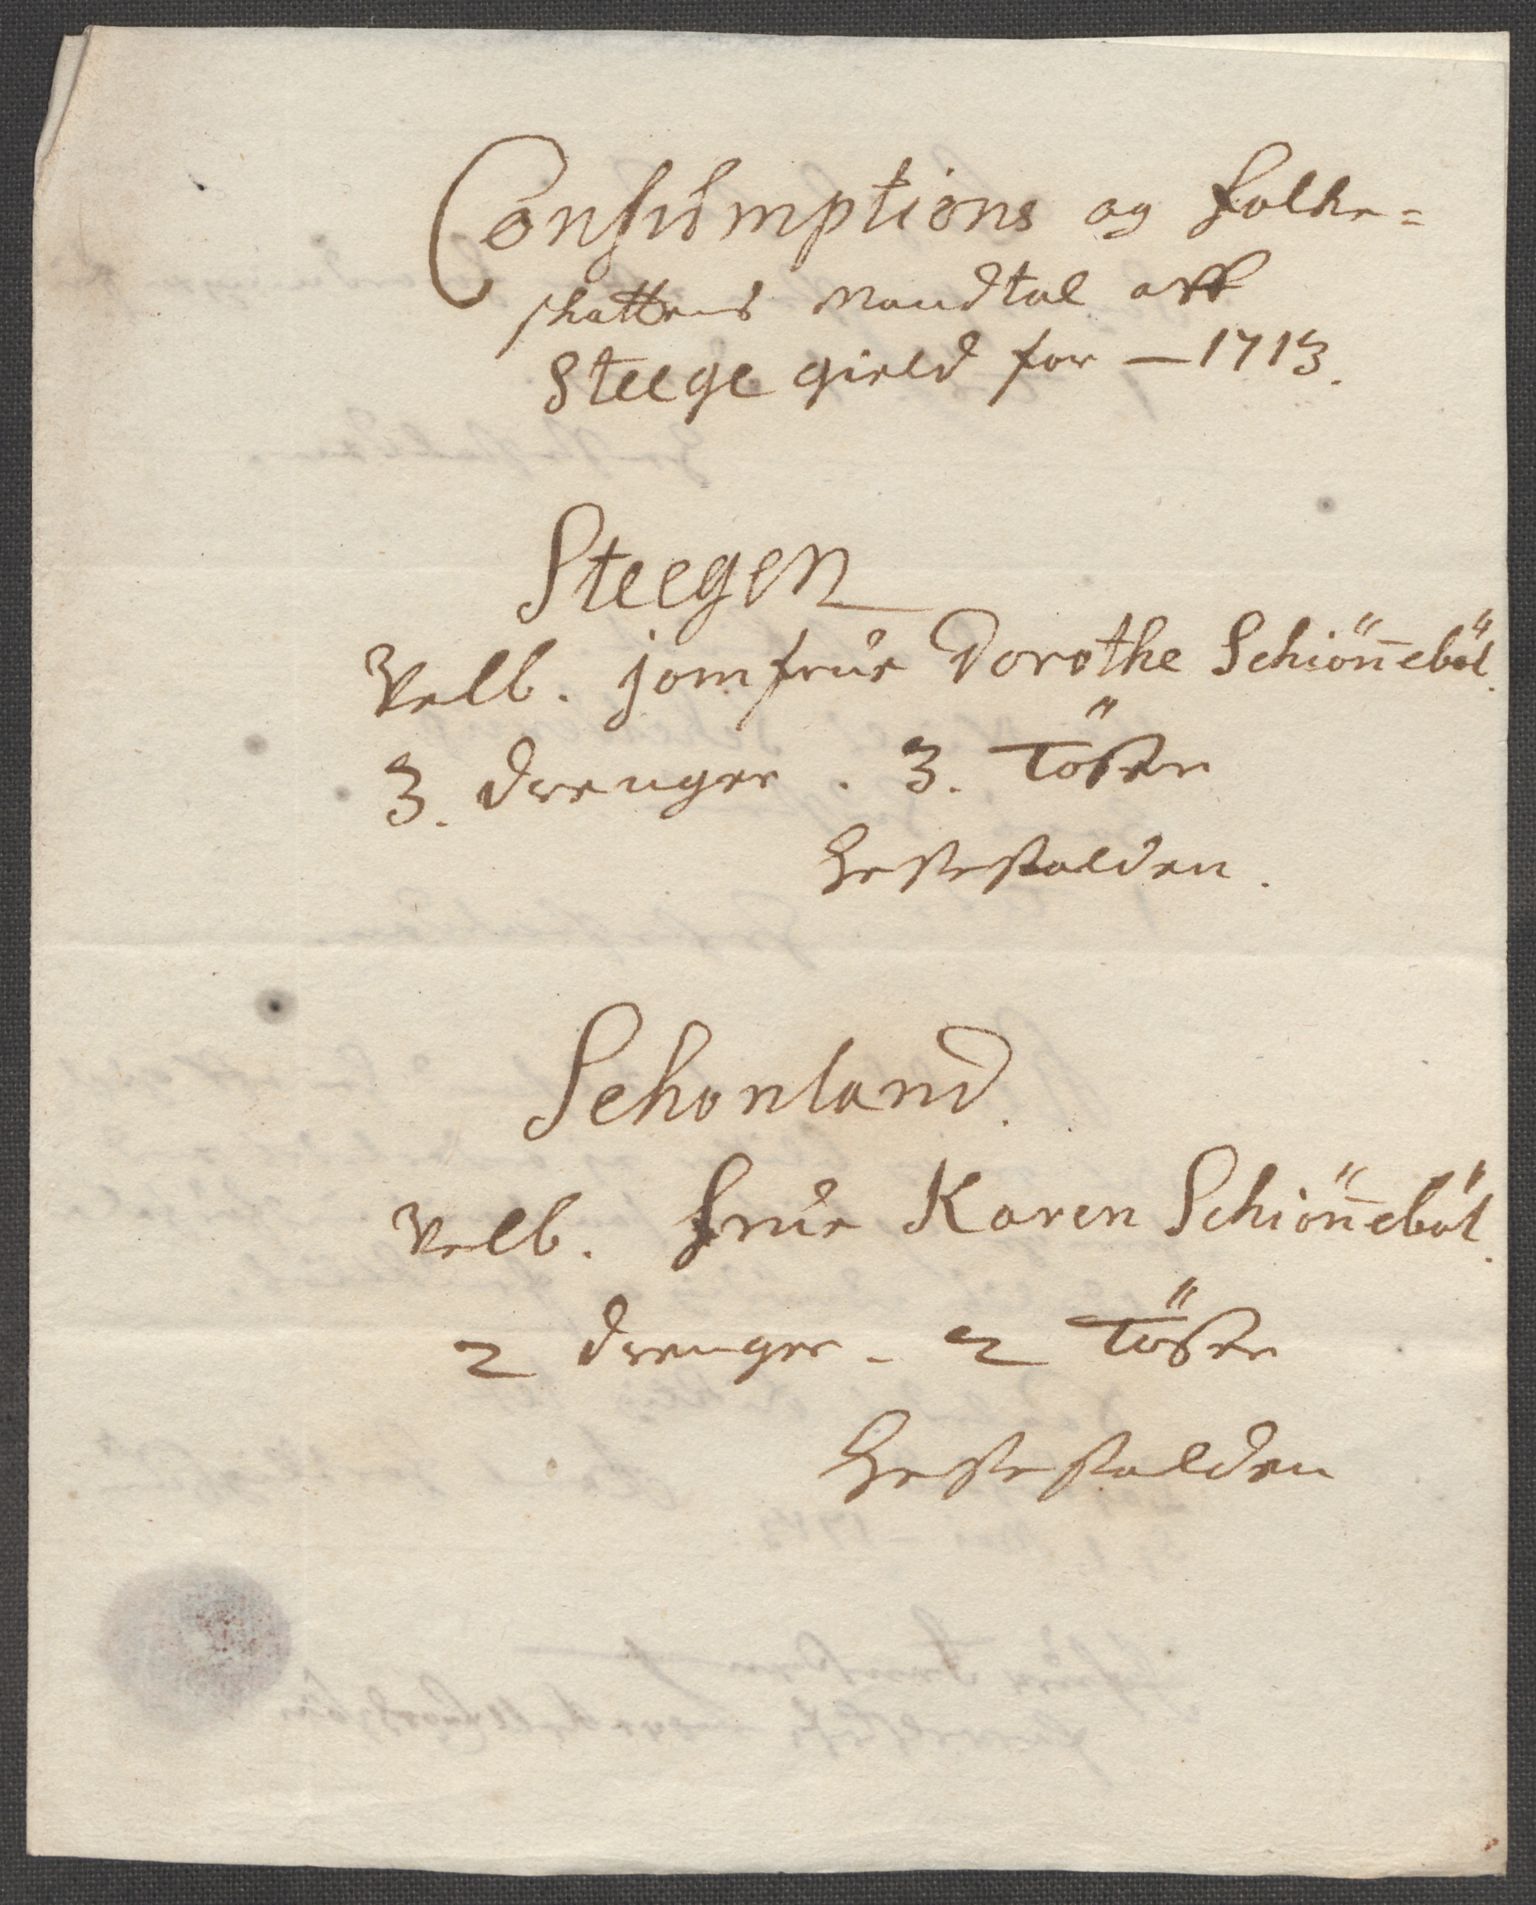 Consumptions og folke=
skattens Mandtal aff
Steege gield for — 1713.
Steegen
Velb. jomfrue Dorothe Schiön̄eböl.
3. drenger . 3. Töser
Hestestalden .
Schonland.
Velb. frue Karen Schiön̄eböl.
2 drenger - 2 Töser
Hestestalden